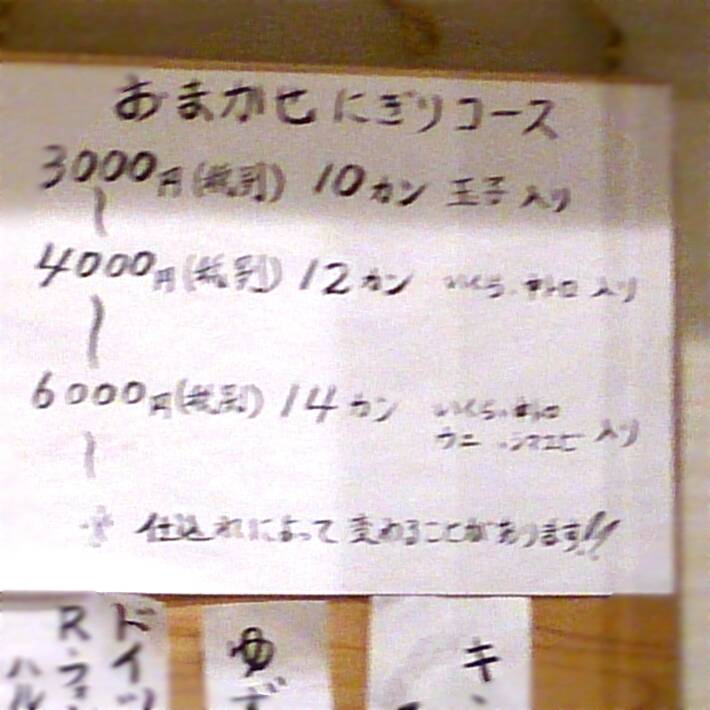 おまかせにぎりコース
3000円(税別) 10カン 玉子入り
〜
4000円(税別) 12カン いくら、中トロ入り
〜
6000円(税別) 14カン いくら、中トロ
ウニ 入り
〜
※ 仕込れによって変わることがあります!!
ドイツ
R.フォン
ハル
ゆず
キ